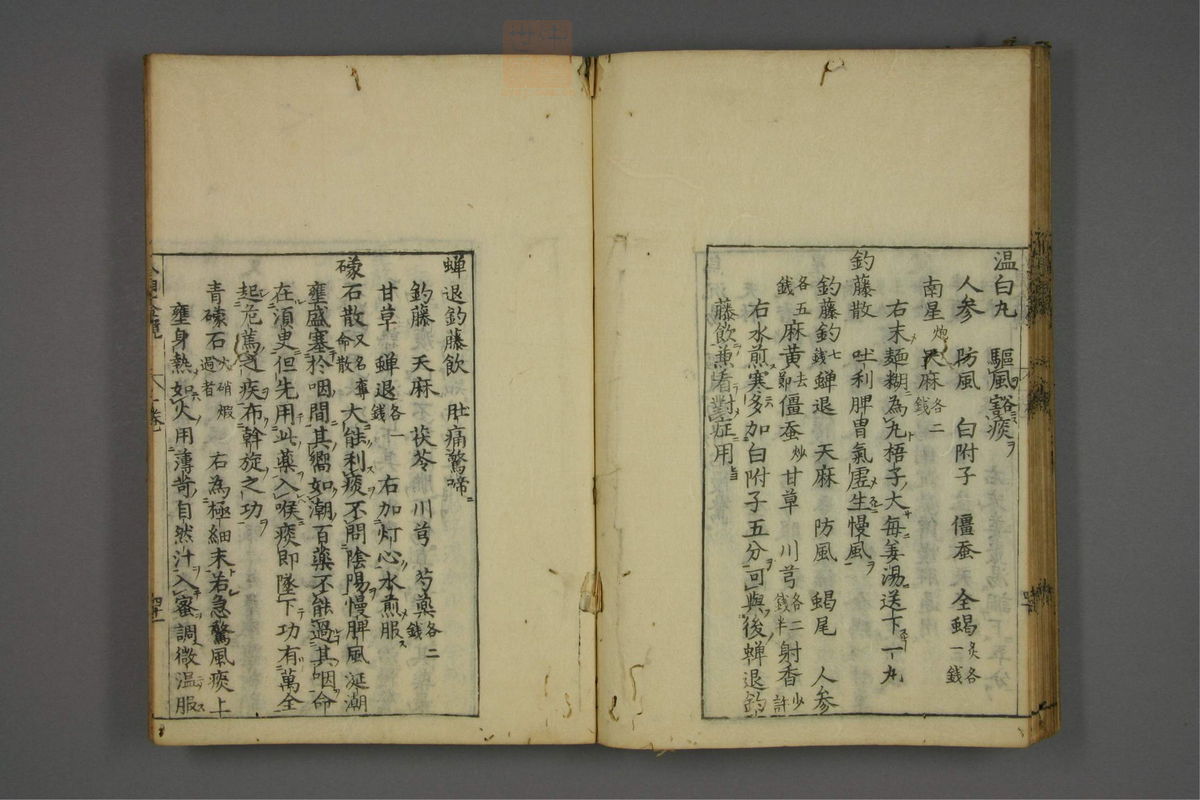 温白丸　驅風豁痰
人参　防風　白附子　僵蚕　全蝎炙各一錢
南星炮　天麻各二錢
右末麺糊為丸梧子大每姜湯送下一丸
釣藤散　吐利脾胃氣虚生慢風
釣藤釣七錢　蝉退　天麻　防風　蝎尾　人参
各五錢　麻黄去節　僵蚕炒　甘草　川芎各二錢半　射香少許
右水煎寒多加白附子五分可與後蝉退釣
藤飲兼看對症用
蝉退釣藤飲　肚痛驚啼
釣藤　天麻　茯苓　川芎　芍薬各二錢
甘草　蝉退各一錢　右加灯心水煎服
礞石散又名奪命散　大能利痰不問陰陽慢脾風涎潮
壅盛塞於咽間其嚮如潮百薬不能過其咽命
在須史但先用此薬入喉痰即墜下功有萬全
起危篤之疾布斡旋之功
青礞石火硝煆過者　右為極細末若急驚風痰上
壅身熱如火用薄荷自然汁入蜜調微温服